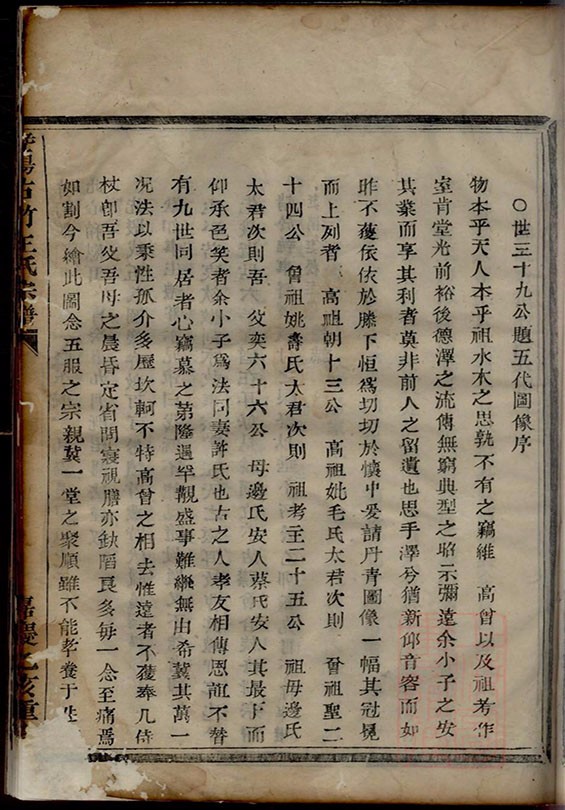 〇世三十九公題五代圖像序
物本乎天人本乎祖水木之思孰不有之竊維 高曾以及祖考作
室肯堂光前裕後德澤之流傳無窮典型之昭示彌遠余小子之安
其業而享其利者莫非前人之留遺也思手澤兮猶新仰音容而如
昨不獲依依於膝下恒為切切於懷中爰請丹青圖像一幅其冠冕
而上列者 高祖朝十三公 高祖妣毛氏太君次則 曾祖聖二
十四公 曾祖妣壽氏太君次則 祖考主二十五公 祖母邊氏
太君次則吾 父奕六十六公 母邊氏安人蔡氏安人其最下而
仰承色笑者余小子為法同妻許氏也古之人孝友相傳恩誼不替
有九世同居者心竊慕之第隆遇罕觀盛事難繼無由希冀其萬一
况法以秉性孤介多歷坎軻不特高曾之相去惟遠者不獲奉几侍
杖即吾父吾母之晨昏定省問寢視膳亦缺陷良多每一念至痛焉
如割今繪此圖念五服之宗親冀一堂之聚順雖不能孝養于生
陽古竹王氏宗譜
嘉慶乙亥重